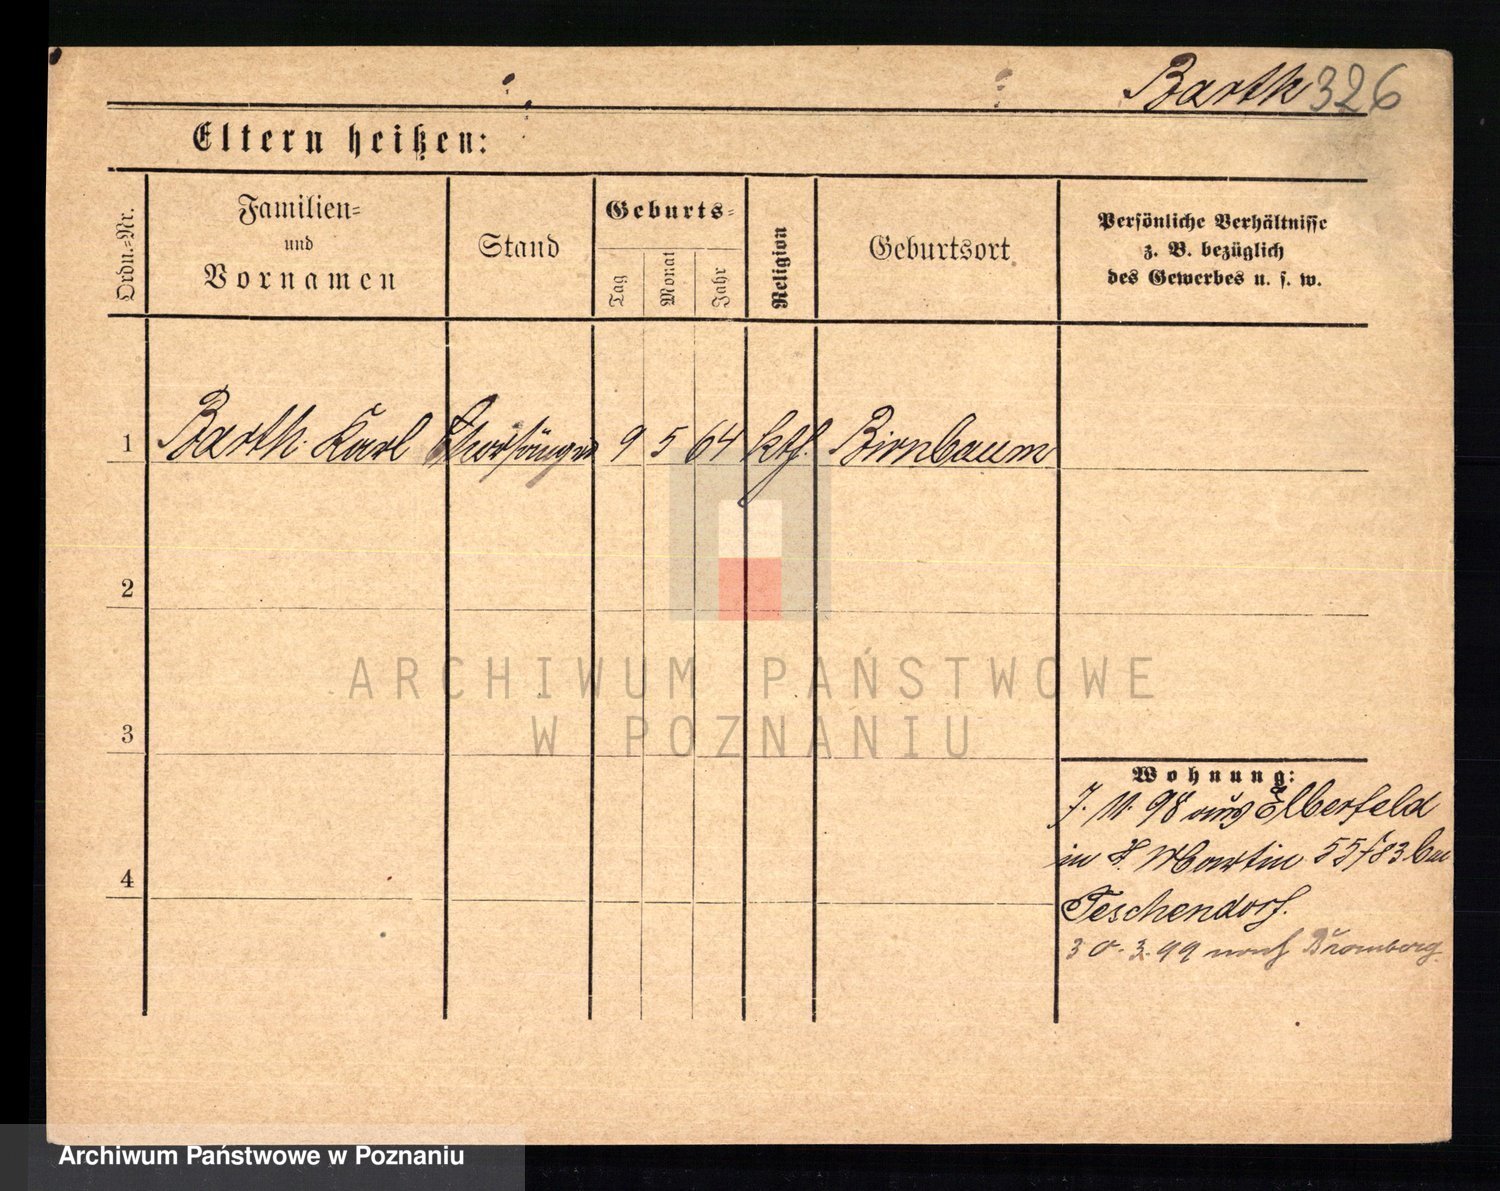 Barth 326
Eltern heißen:
Ordn.-Nr.
Familien- und Vornamen
Stand
Geburts-
Tag
Monat
Jahr
Religion
Geburtsort
Persönliche Verhältnisse
z. B. bezüglich
des Gewerbes u. s. w.
1 Barth Karl Chorsänger 9 5 64 kth. Birnbaum
2
3
4
Wohnung:
7. 11. 98 aus Elberfeld
in St. Martin 55/83 bei
Teschendorf.
30. 3. 99 nach Bromberg
ARCHIWUM PAŃSTWOWE
W POZNANIU
Archiwum Państwowe w Poznaniu